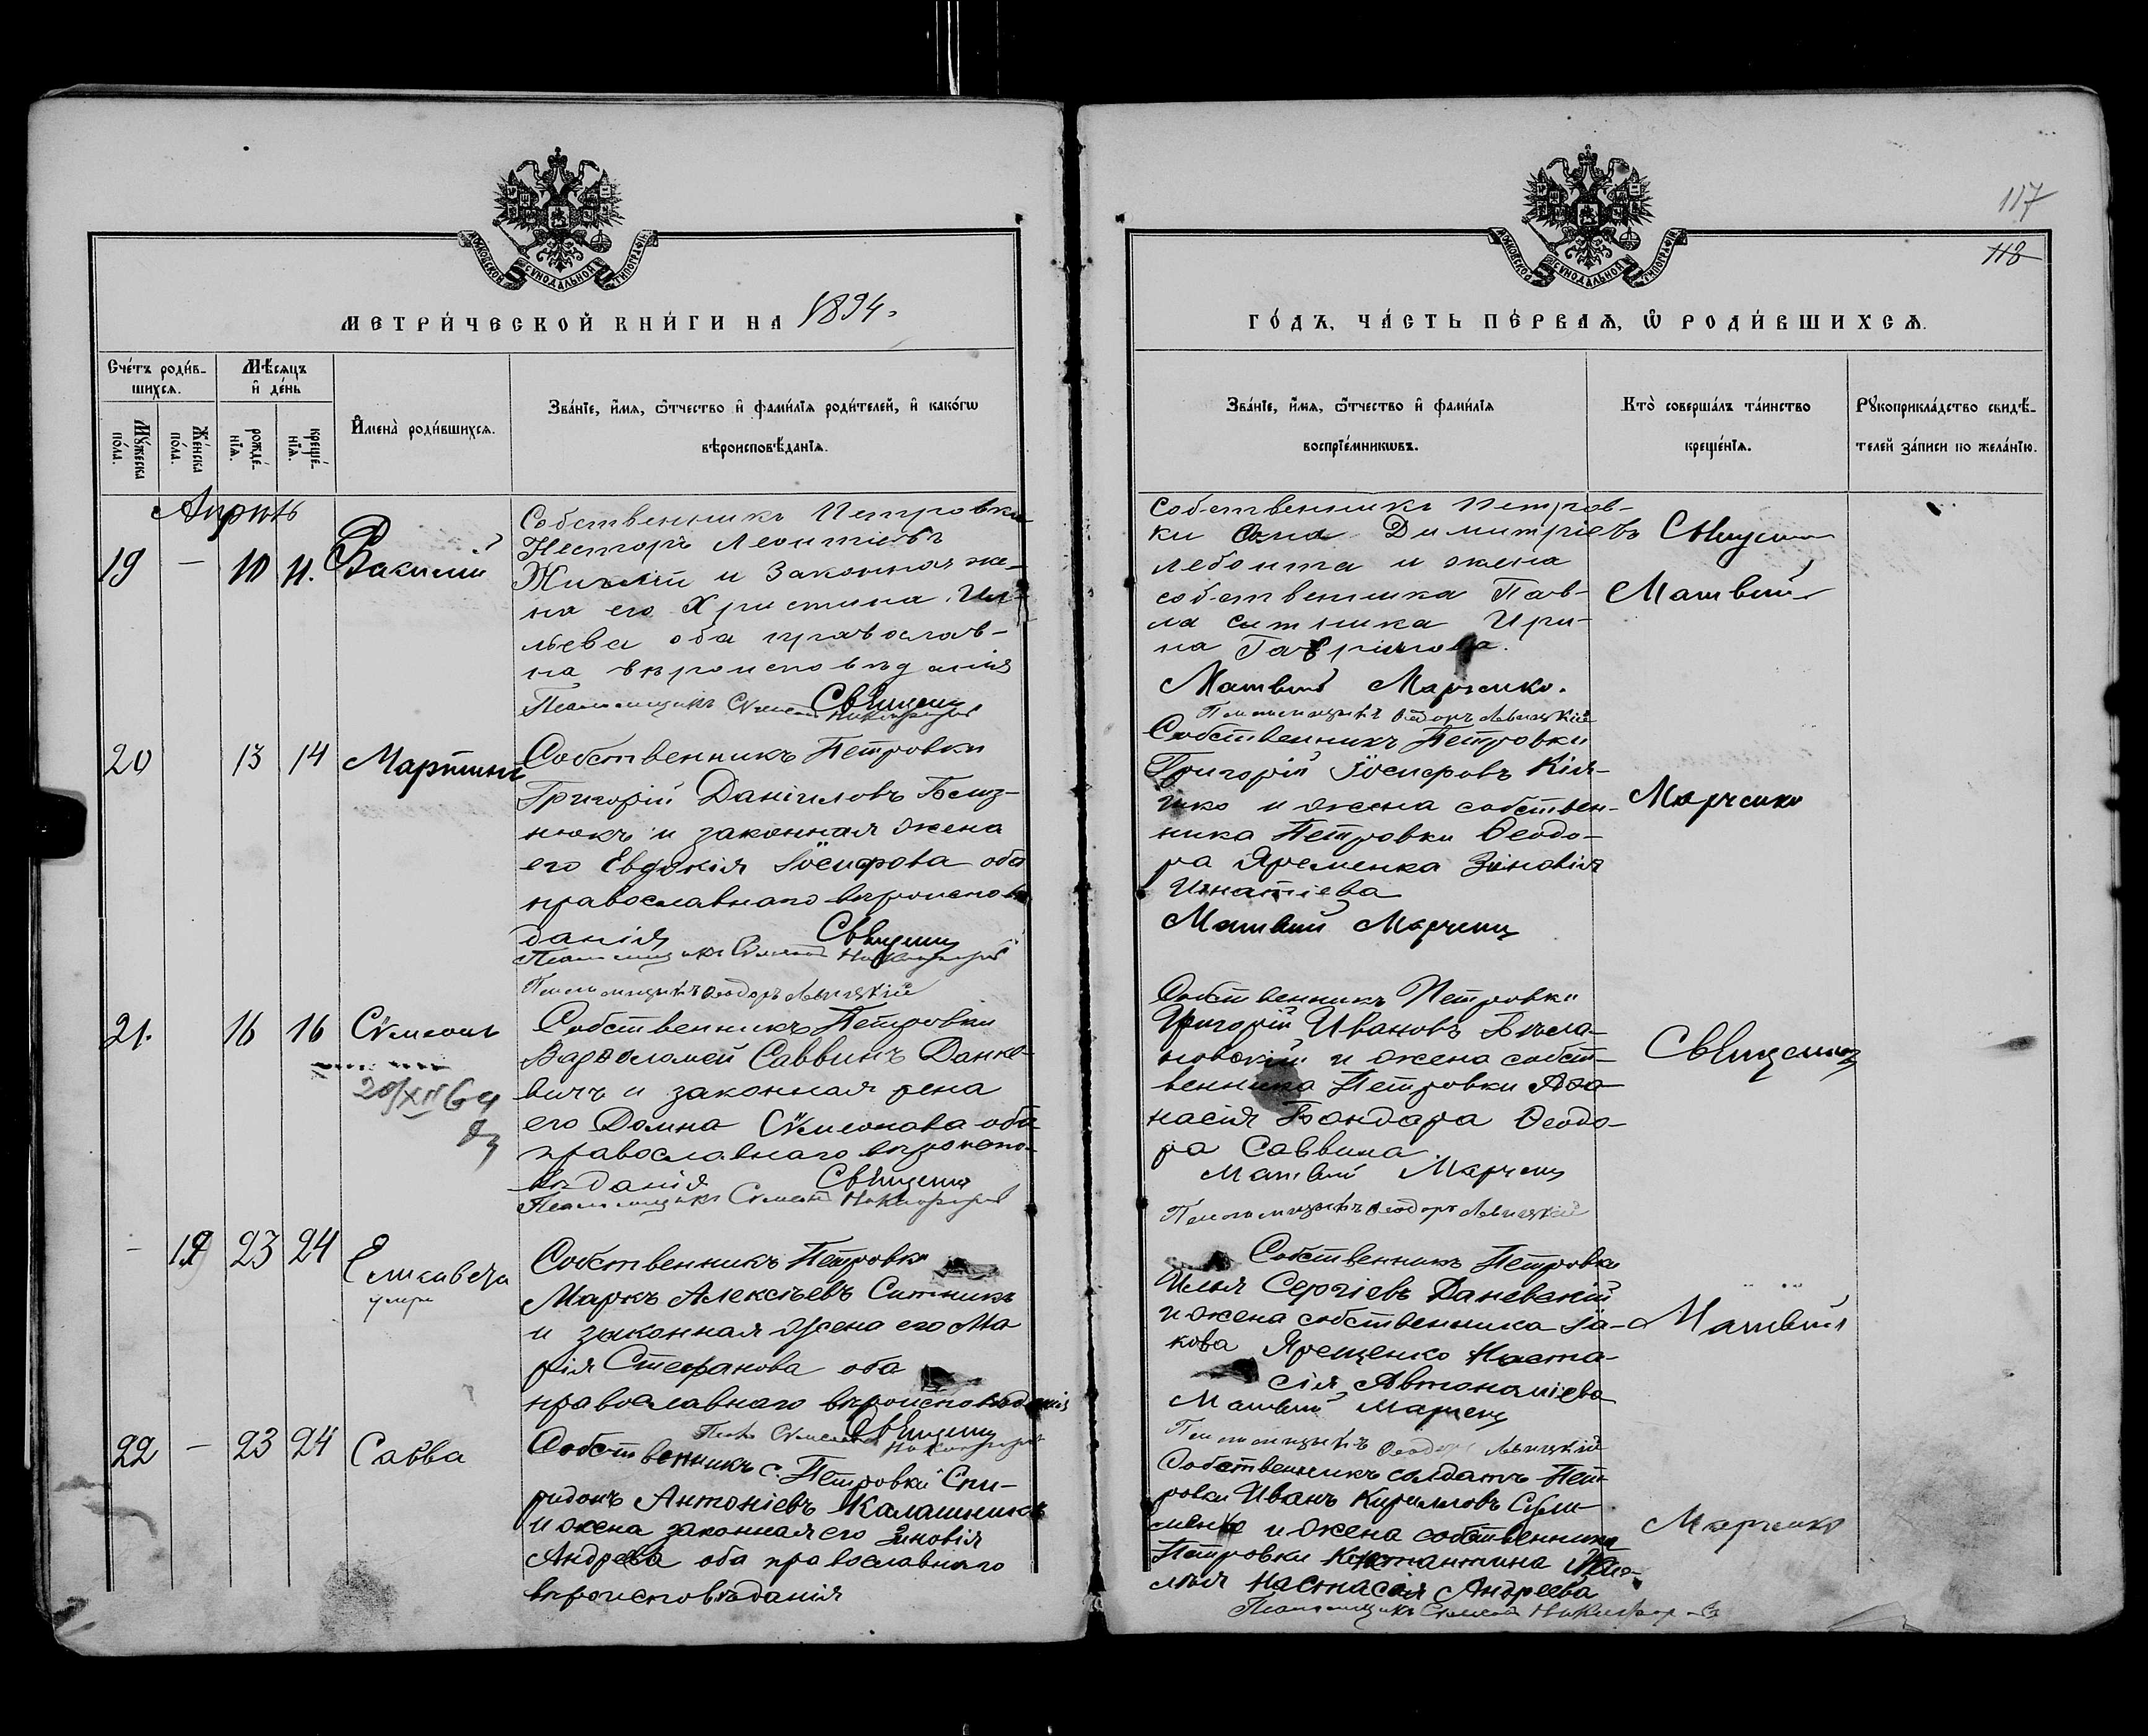 МОСКОВСКОЙ СѴНОДАЛЬНОЙ ТИПОГРАФІИ
МЕТРИ́ЧЕСКОЙ КНИ́ГИ НА 1894.
Сче́тъ роди́в-
шихся.
Мѣ́сяцъ
и҆ де́нь
Му́жеска
по́ла.
Же́нска
по́ла.
рожде́-
нїя.
креще́-
нїя.
И҆мена̀ роди́вшихся.
Зва́нїе, и҆́мя, ѻ҆́тчество и҆ фами́лїя роди́телей, и҆ како́гѡ
вѣроисповѣ́данїя.
Апрѣль
19 — 10 11. Василій
Собственникъ Петровки
Несторъ Леонтіевъ
и законная же-
на его Христина Ил-
льева оба православ-
на вѣроисповѣданія
Псаломщикъ Сѵмеонъ Никифоровъ
Священ
20 13 14 Мартинъ
Собственникъ Петровки
Григорій Даніиловъ Близ-
нюкъ и законная жена
его Евдокія Іосифова оба
православнаго вѣроиспов
данія Священ
Псаломщикъ Сѵмеонъ Никифоровъ
Псаломщикъ Ѳеодоръ Левицкій
21. 16 16 Сѵмеонъ
20/XII 64
Собственникъ Петровки
Варѳоломей Саввинъ Данке-
вичъ и законная жена
его Домна Сѵмеонова оба
православнаго вѣроиспо-
вѣданія Священ
Псаломщикъ Сѵмеонъ Никифоровъ
— 19 23 24 Елисавета
умер
Собственникъ Петровки
Маркъ Алексѣевъ Ситникъ
и законная жена его Ма
рія Стефанова оба
православнаго вѣроисповѣданія
Псал Сѵмеонъ Никифоровъ
Священ
22 — 23 24 Савва
Собственникъ с. Петровки Спи-
ридонъ Антоніевъ Калашникъ
и жена законная его Зиновія
Андрева оба православнаго
вѣроисповѣданія
117
118
МОСКОВСКОЙ СѴНОДАЛЬНОЙ ТИПОГРАФІИ
ГО́ДЪ, ЧА́СТЬ ПЕ́РВАЯ, Ѡ҆ РОДИ́ВШИХСЯ.
Зва́нїе, и҆́мя, ѻ҆́тчество и҆ фами́лїя
воспрїе́мникѡвъ.
Кто̀ соверша́лъ та́инство
креще́нїя.
Рꙋкоприкла́дство свидѣ́-
телей за́писи по жела́нїю.
собственникъ Петров-
ки Димитріевъ
Лебонта и жена
собственника Пав-
ла Ситника Ири-
на Гаврилова.
Матвій Марченко.
Псаломщикъ Ѳеодоръ Левицкій
Священ
Матвій
Собственникъ Петровки
Григорій Іосифовъ Кія-
шко и жена собствен-
ника Петровки Ѳеодо-
ра Яременка Зиновія
Игнатіева
Матвій Марченко
Марченко
Собственникъ Петровки
Григорій Ивановъ
и жена собст-
венника Петровки Аѳа-
насія Бондара Ѳеодо-
ра Саввина
Матвій Марченко
Псаломщикъ Ѳеодоръ Левицкій
Священникъ
Собственникъ Петровки
Илья Сергіевъ Даневскій
и жена собственника Іа-
кова Ярещенко Наста-
сія Автономіева
Матвій Марченко
Псаломщикъ Ѳеодоръ Левицкій
Матвій
Собственникъ солдатъ Пет-
ровки Иванъ Кирилловъ
и жена собственника
Петровки Константина
Настасія Андреева
Псаломщикъ Сѵмеонъ Никифоровъ
Марченко